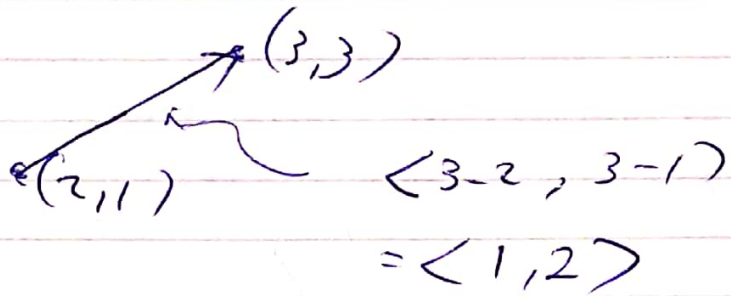 (3,3)
(2,1)
<3-2, 3-1>
=<1,2>